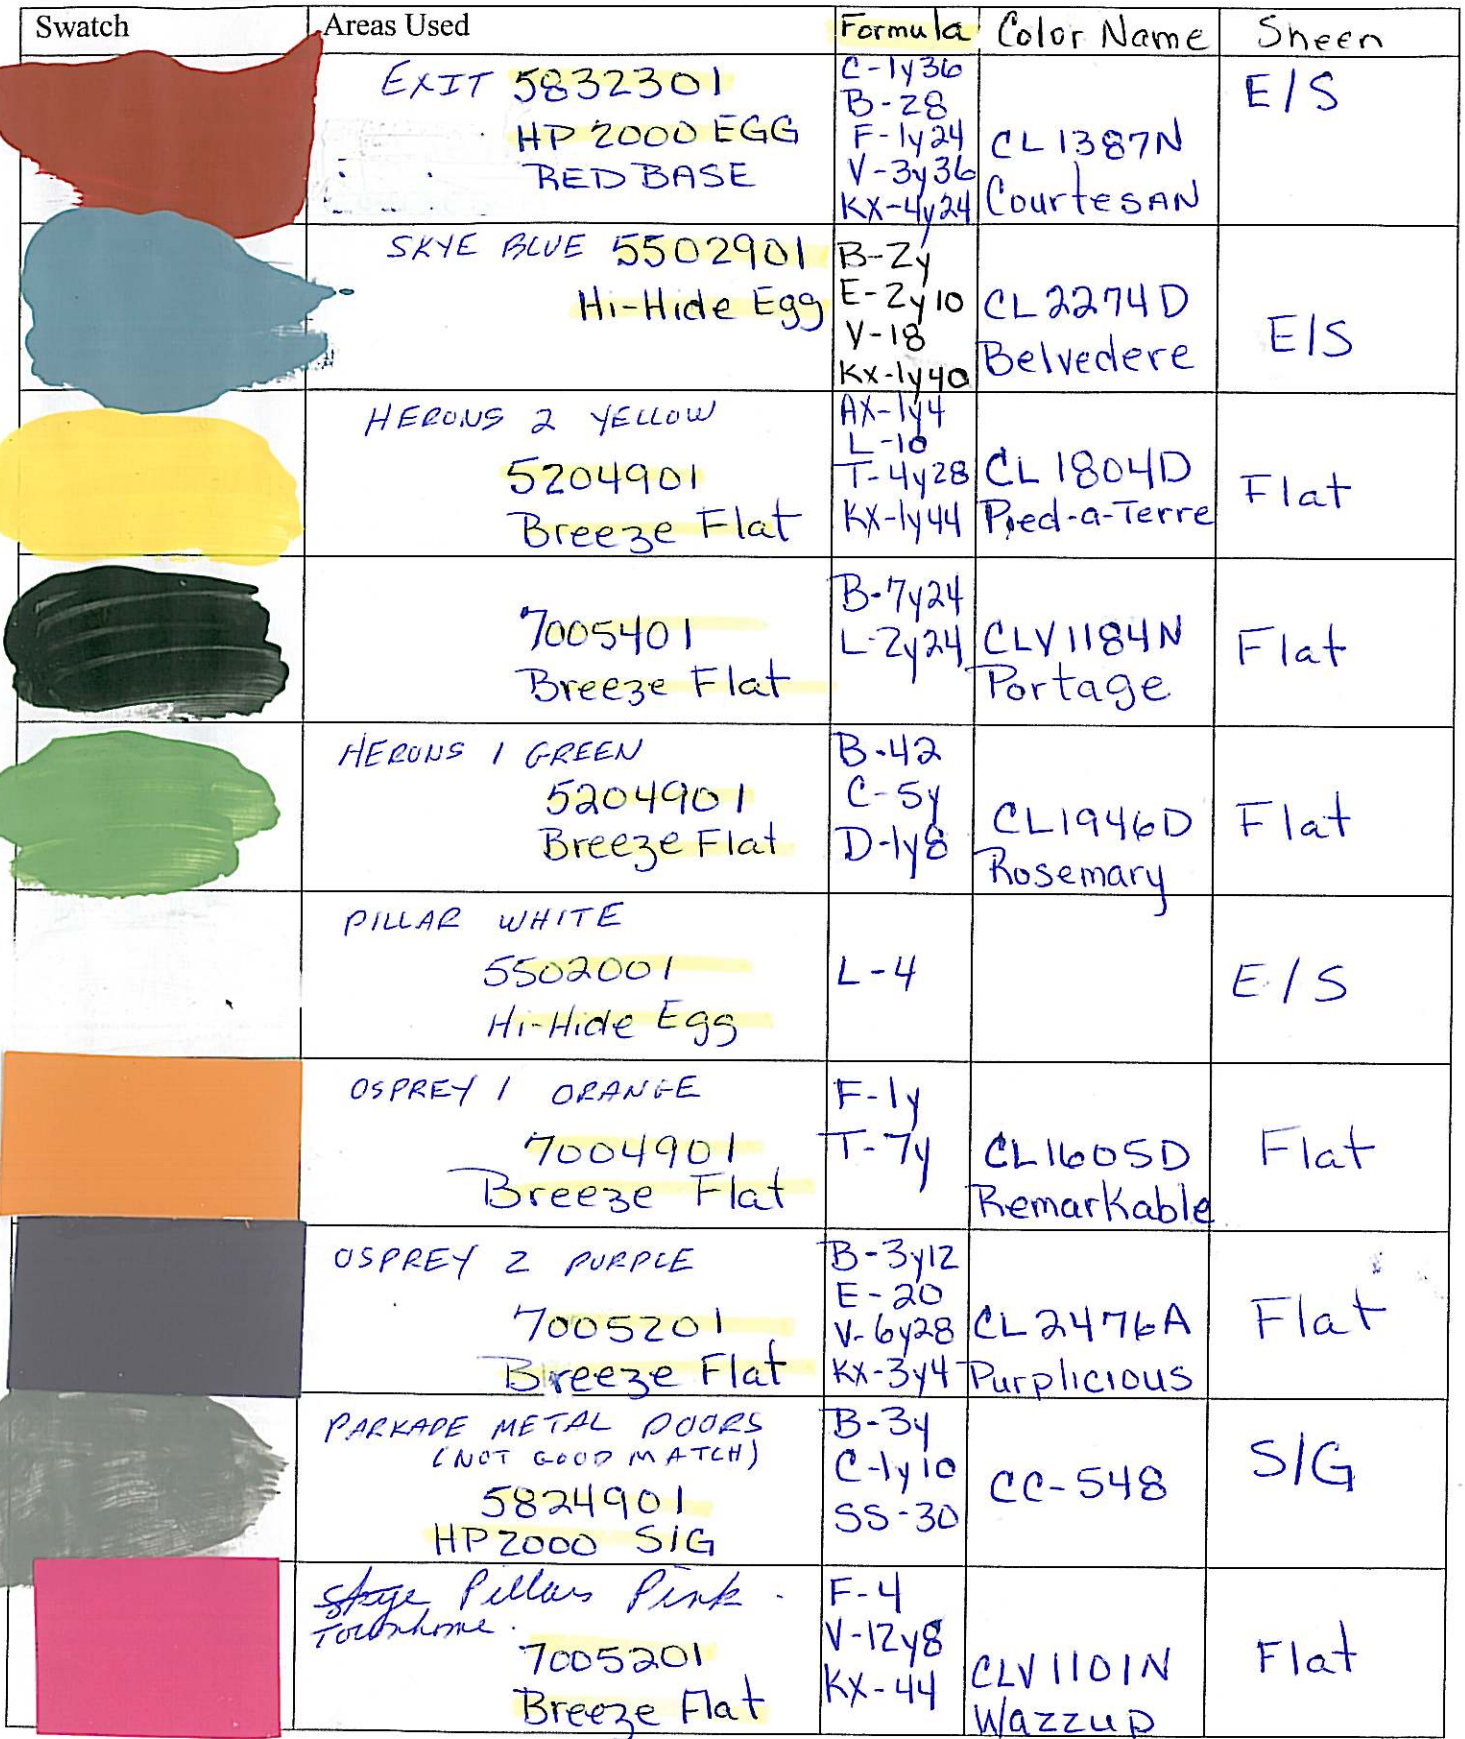 Swatch Areas Used Formula Color Name Sheen
EXIT 5832301
HP 2000 EGG
RED BASE
C-1y36
B-28
F-1y24
V-3y36
KX-4y24
CL1387N
Courtesan
E/S
SKYE BLUE 5502901
Hi-Hide Egg
B-2y
E-2y10
V-18
KX-1y40
CL2274D
Belvedere
E/S
HERONS 2 YELLOW
5204901
Breeze Flat
AX-1y4
L-10
T-4y28
KX-1y44
CL1804D
Pied-a-Terre
Flat
7005401
Breeze Flat
B-7y24
L-2y24
CLV1184N
Portage
Flat
HERONS 1 GREEN
5204901
Breeze Flat
B-42
C-5y
D-1y8
CL1946D
Rosemary
Flat
PILLAR WHITE
5502001
Hi-Hide Egg
L-4
E/S
OSPREY 1 ORANGE
7004901
Breeze Flat
F-1y
T-7y
CL1605D
Remarkable
Flat
OSPREY 2 PURPLE
7005201
Breeze Flat
B-3y12
E-20
V-6y28
KX-3y4
CL2476A
Purplicious
Flat
PARKADE METAL DOORS
(NOT GOOD MATCH)
5824901
HP2000 S/G
B-3y
C-1y10
SS-30
CC-548
S/G
Skye Pillars Pink.
Townhome.
7005201
Breeze Flat
F-4
V-12y8
KX-44
CLV1101N
Wazzup
Flat